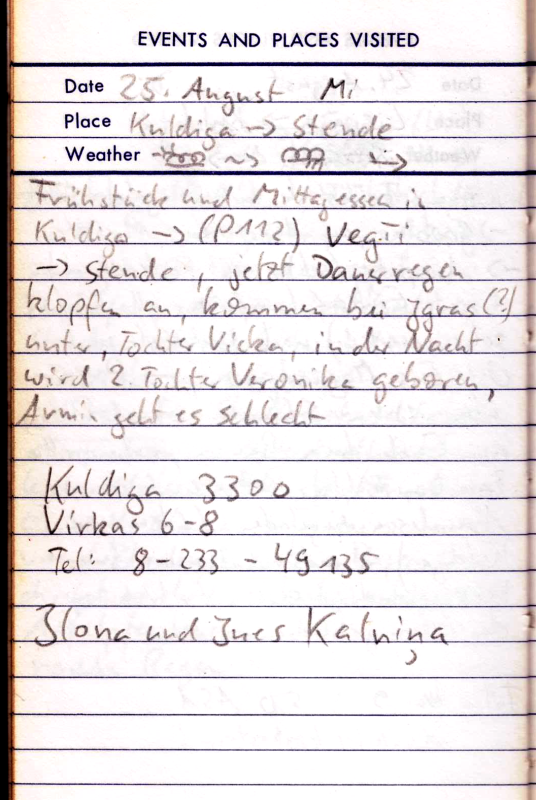 EVENTS AND PLACES VISITED
Date 25. August Mi
Place Kuldiga → Stende
Weather
Frühstück und Mittagessen in
Kuldiga → (P112) Vegji
→ Stende, jetzt Dauerregen
klopfen an, kommen bei Igras(?)
unter, Tochter Vicka, in der Nacht
wird 2. Tochter Veronika geboren,
Armin geht es schlecht
Kuldiga 3300
Virkas 6-8
Tel: 8-233-49135
Ilona und Ines Kalniņa